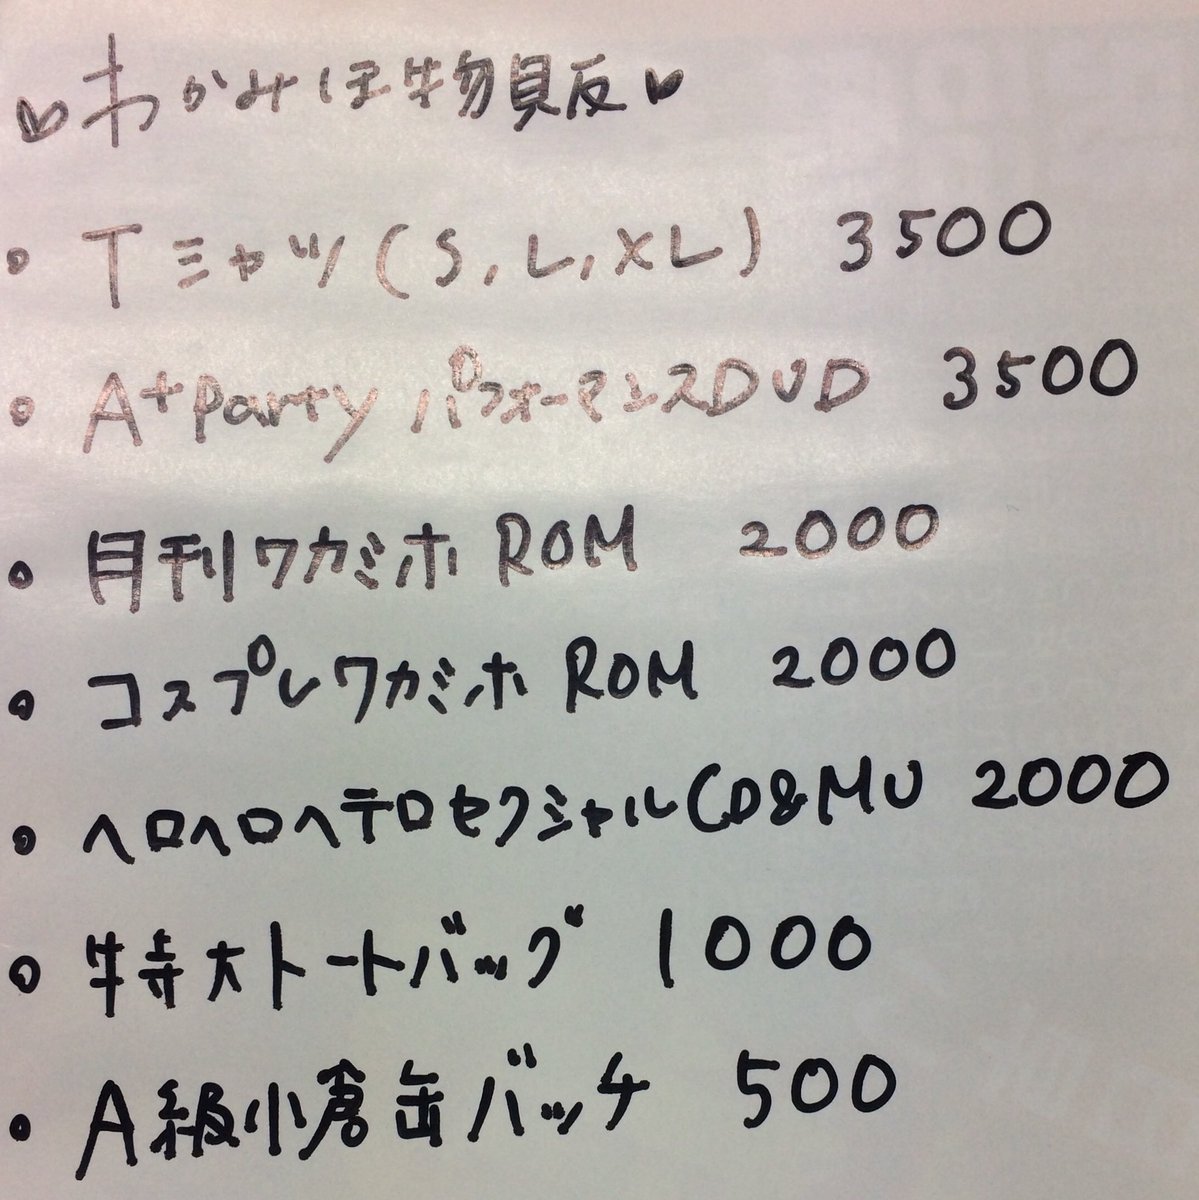 ♥わかみほ物販♥
・Tシャツ(S,L,XL) 3500
・A+Party パフォーマンスDVD 3500
・月刊ワカミホ ROM 2000
・コスプレワカミホ ROM 2000
・ヘロヘロヘテロセクシャルCD&MU 2000
・特大トートバッグ 1000
・A級小倉缶バッチ 500